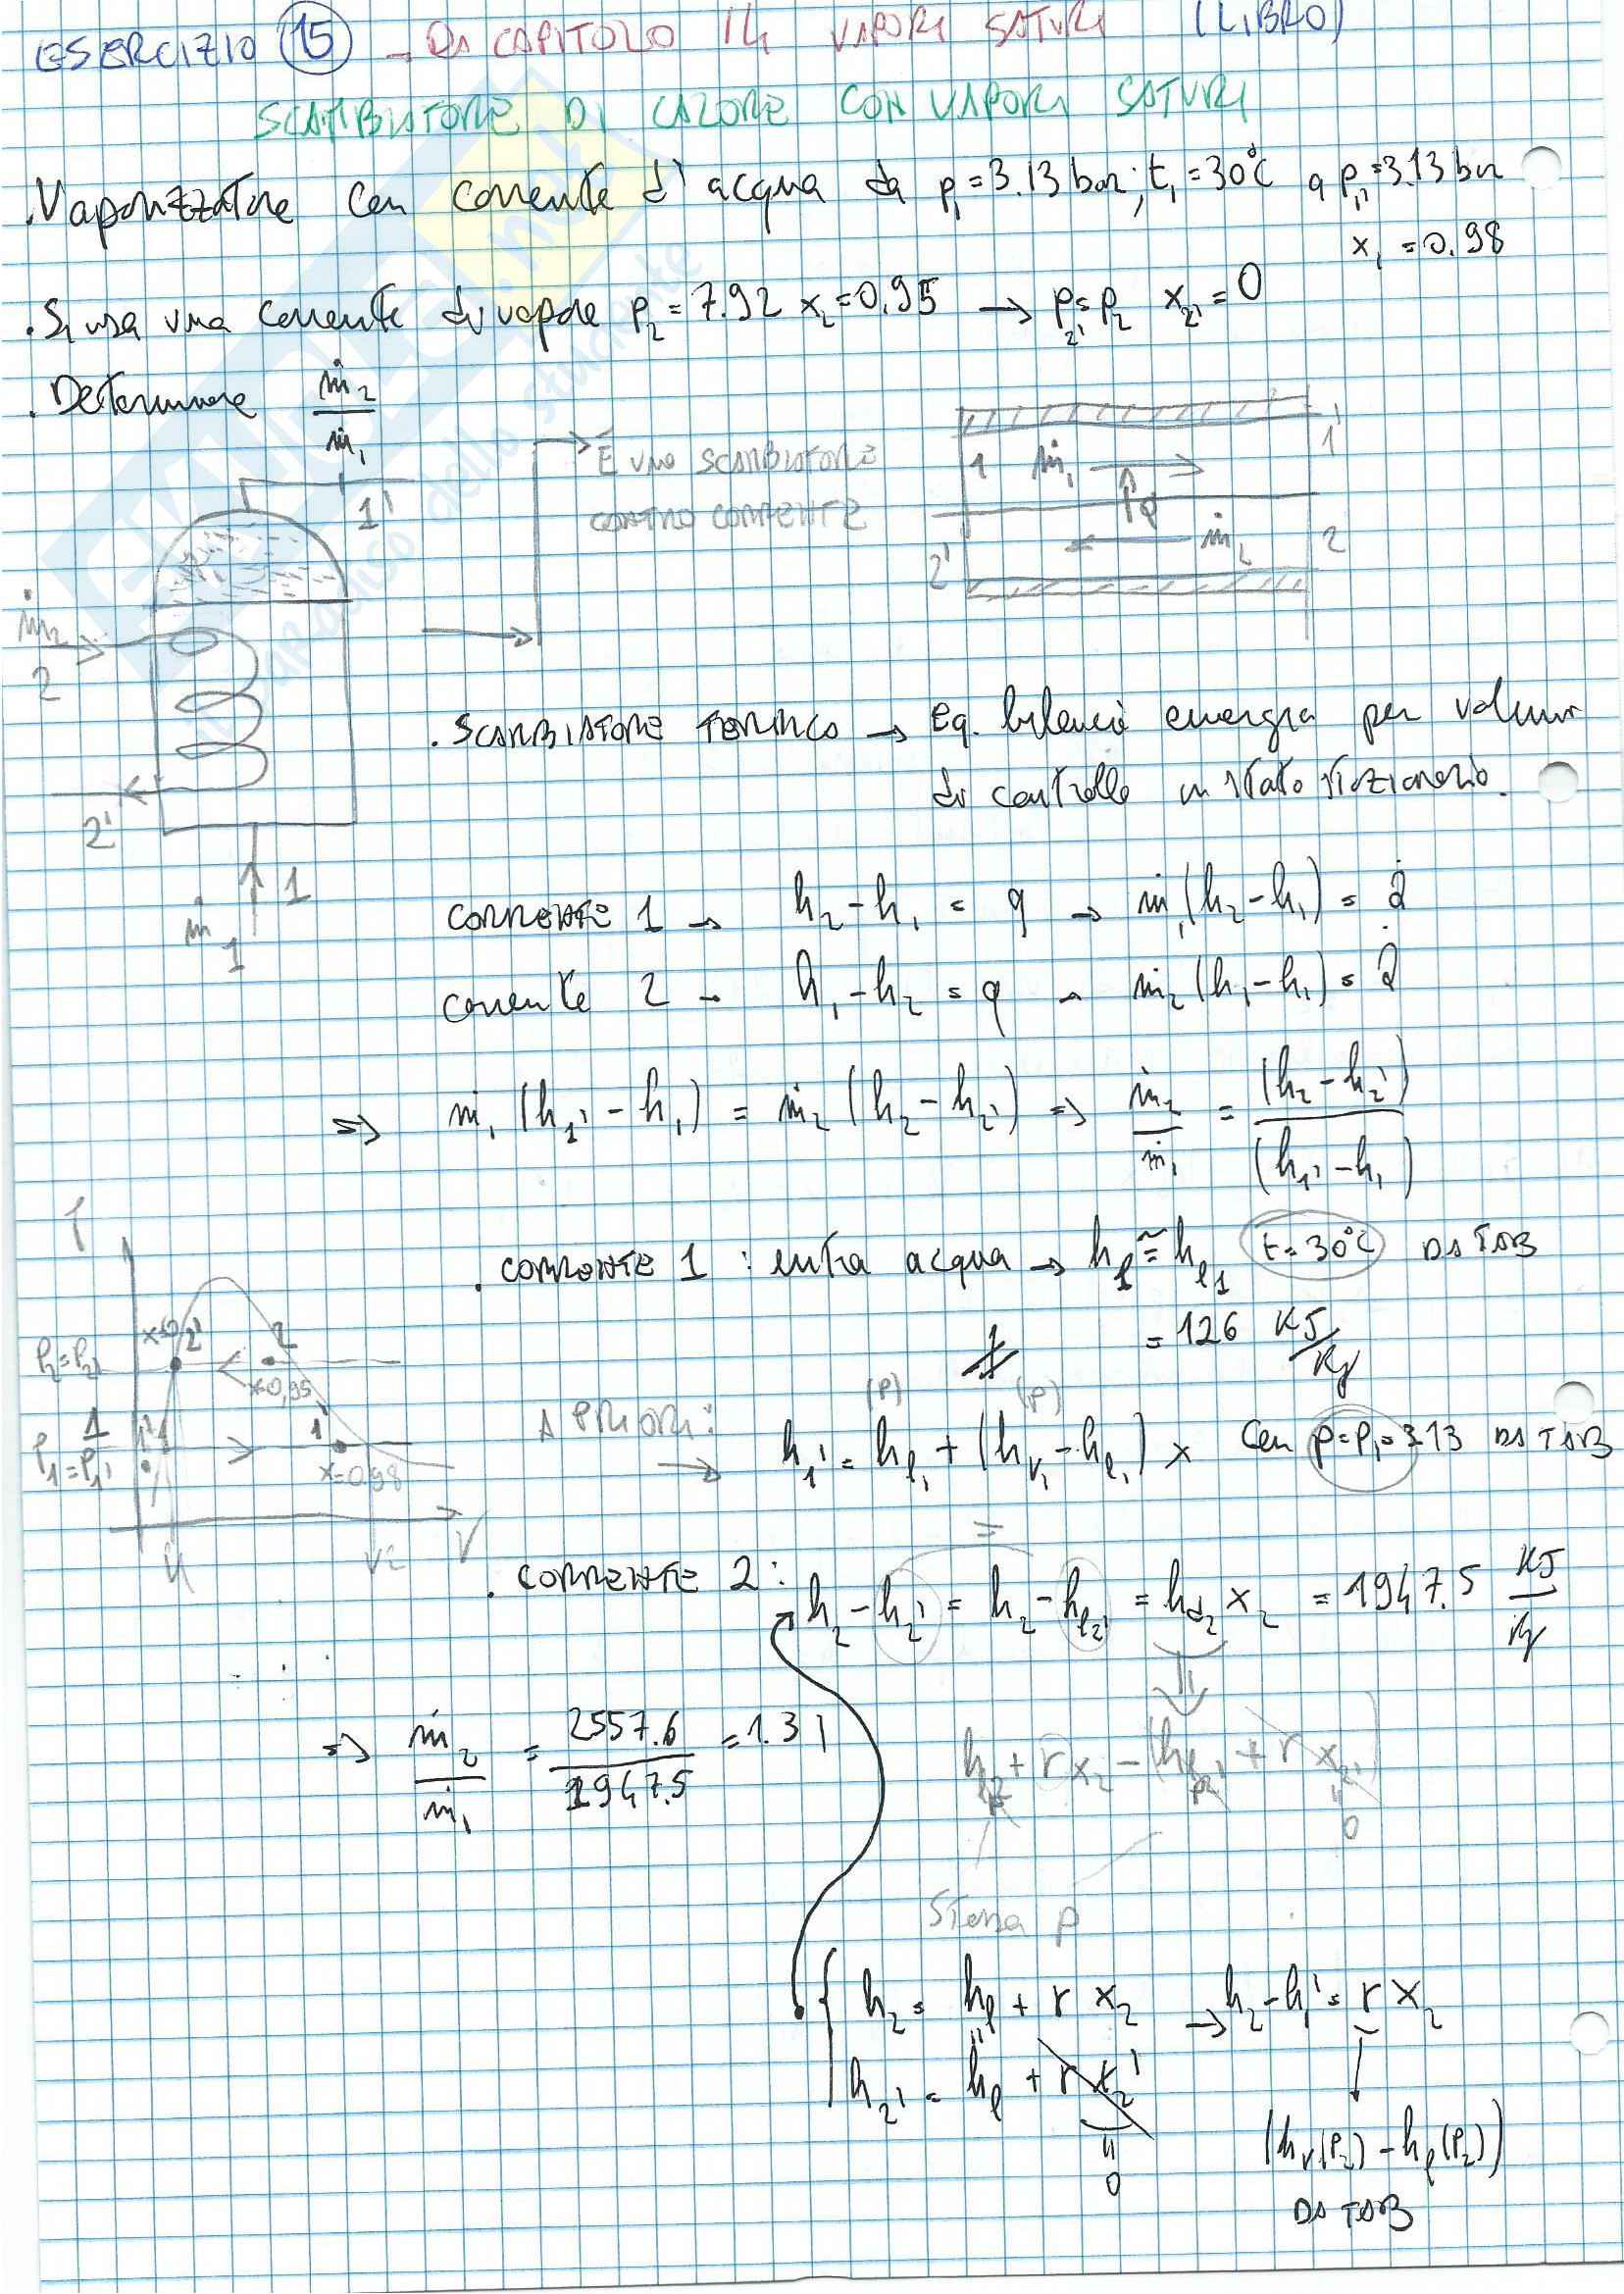 ESERCIZIO 15 - DA CAPITOLO 14 VAPORI SATURI (LIBRO)
SCAMBIATORE DI CALORE CON VAPORI SATURI
. Vaporizzatore con corrente d'acqua da p₁ = 3.13 bar ; t₁ = 30°C a p₁' = 3.13 bar
x₁ = 0.98
. Si usa una corrente di vapore p₂ = 7.92 x₂ = 0.95 → p₂' = p₂ x₂' = 0
. Determinare ṁ₂/ṁ₁
È uno SCAMBIATORE
CONTRO CORRENTE
1 ṁ₁ 1'
Q
2' ṁ₂ 2
1'
ṁ₂
2
2'
ṁ₁ 1
. SCAMBIATORE TERMICO → eq. bilancio energia per volumi
di controllo in stato stazionario.
CORRENTE 1 → h₂ - h₁ = q → ṁ₁(h₂ - h₁) = Q̇
corrente 2 → h₁ - h₂ = q → ṁ₂(h₁ - h₁) = Q̇
⇒ ṁ₁(h₁' - h₁) = ṁ₂(h₂ - h₂') ⇒ ṁ₂/ṁ₁ = (h₂ - h₂')/(h₁' - h₁)
. CORRENTE 1 : entra acqua → h₁ ≅ hₗ₁ t = 30°C DA TAB
= 126 KJ/Kg
x=0 2' 2
p₂ = p₂'
x=0,95
1 1'
p₁ = p₁'
x=0.98
V
A PRIORI: → h₁' = hₗ₁(p) + (hᵥ₁(p) - hₗ₁) x Con p = p₁ = 3.13 DA TAB
. CORRENTE 2 : h₂ - h₂' = h₂ - hₗ₂' = h_d₂ x₂ = 1947.5 KJ/Kg
⇒ ṁ₂/ṁ₁ = 2557.6/1947.5 = 1.31
+ r x₂ - ( + r x₂')
0
Stessa p
h₂ = hₗ + r x₂ → h₂ - h₁' = r x₂
h₂' = hₗ + r x₂'
0
(hᵥ(p₂) - hₗ(p₂))
DA TAB